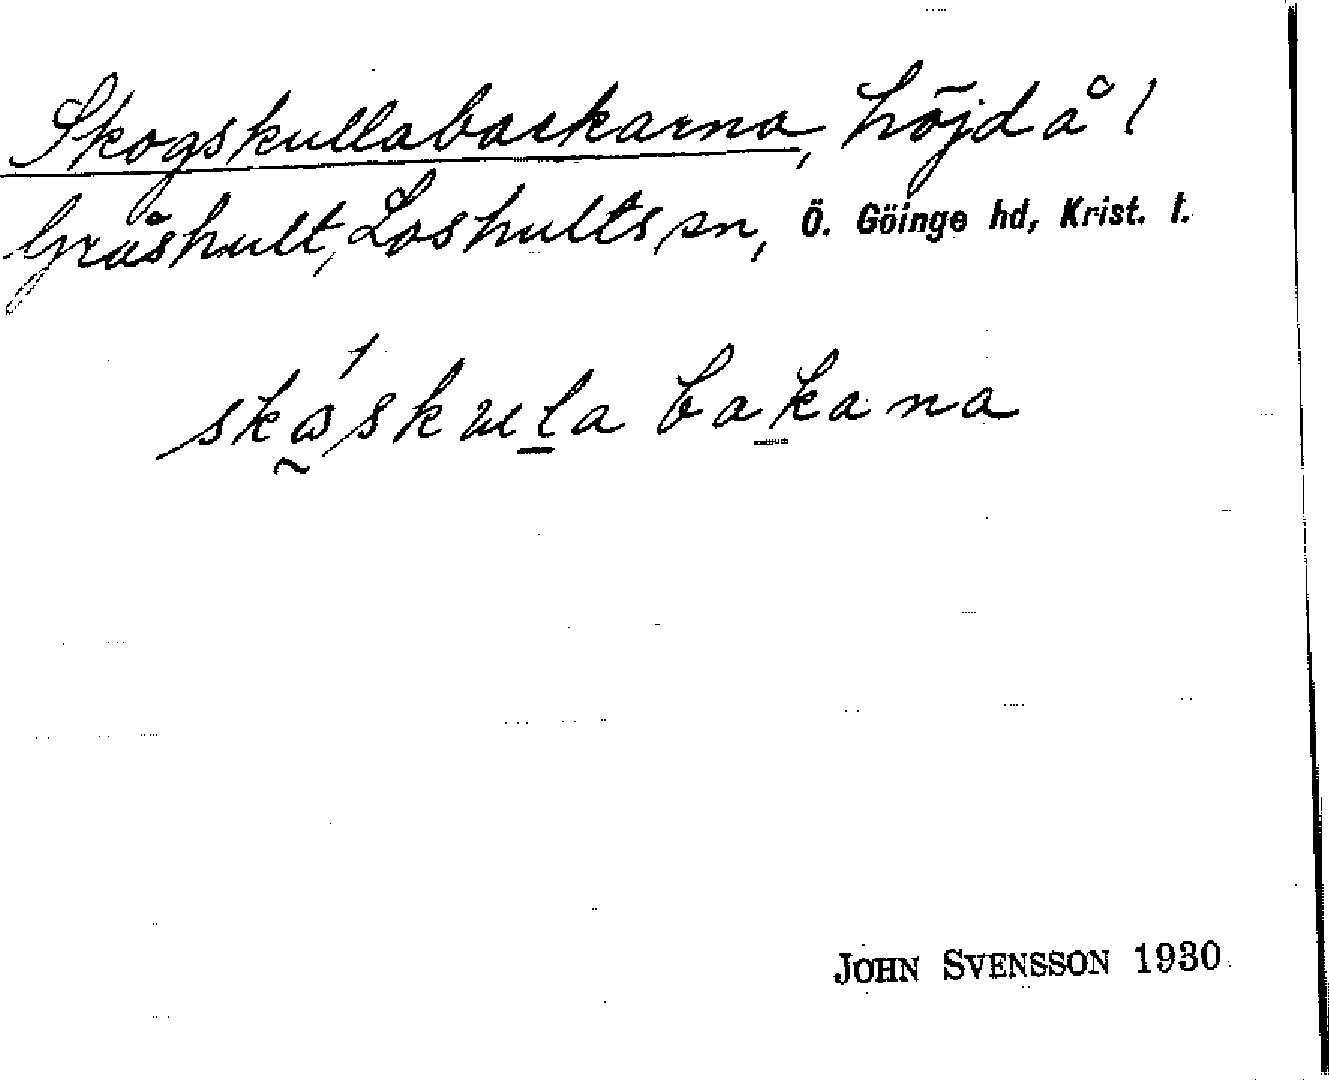 Skogskullabackarna, höjd å /
Gråshult, Loshults sn, Ö. Göinge hd, Krist. l.
skɷ́skula bakana
JOHN SVENSSON 1930